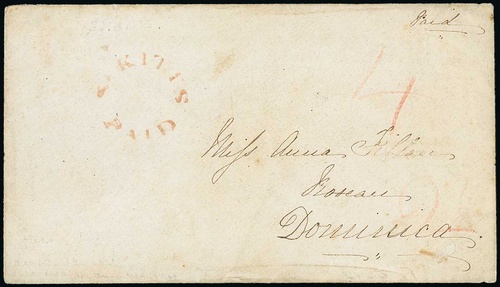 Paid
ST KITTS
PAID
4
Miss Anna
Roseau
Dominica.